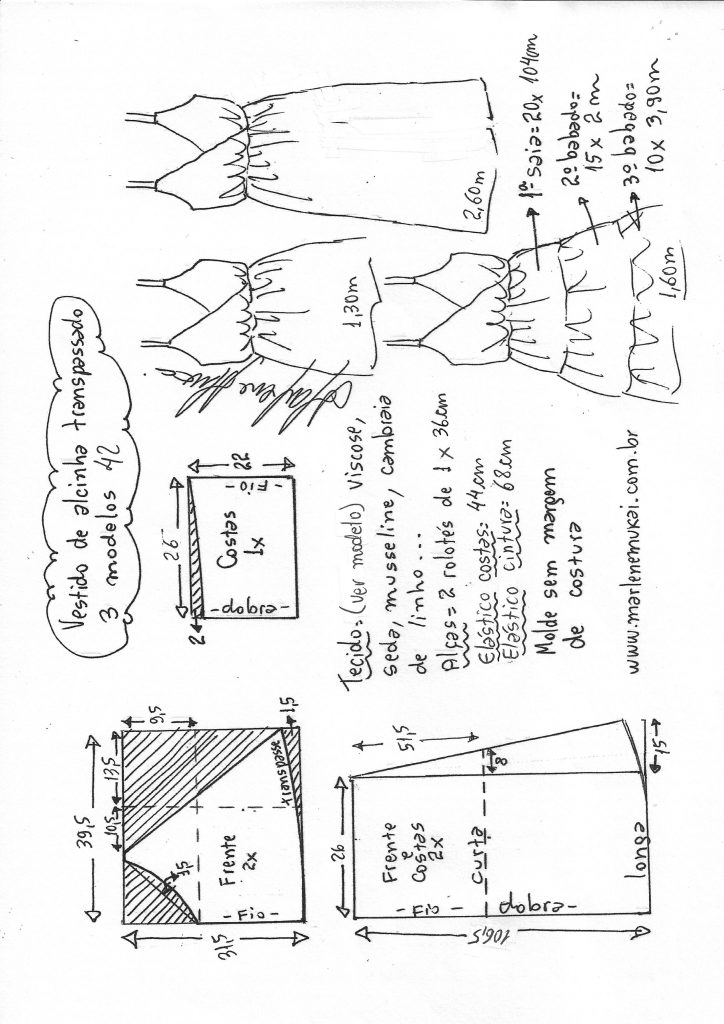 Vestido de alcinha transpassado
3 modelos 42
39,5
10,5
13,5
9,5
1,5
31,5
1,5
transpasse
Frente
2x
- Fio -
26
2
22
Costas
1x
- Fio -
- dobra -
26
51,5
8
15
106,5
Frente
e
Costas
2x
curta
longa
- Fio -
dobra -
Tecido: (ver modelo) viscose,
seda, musseline, cambraia
de linho...
Alças = 2 rolotés de 1 x 36cm
Elástico costas: 44cm
Elástico cintura: 68cm
Molde sem margem
de costura
www.marlenemukai.com.br
1,30m
2,60m
1,60m
1ª saia = 20 x 104cm
2º babado =
15 x 2 m
3º babado =
10 x 3,90m
Marlene Mukai